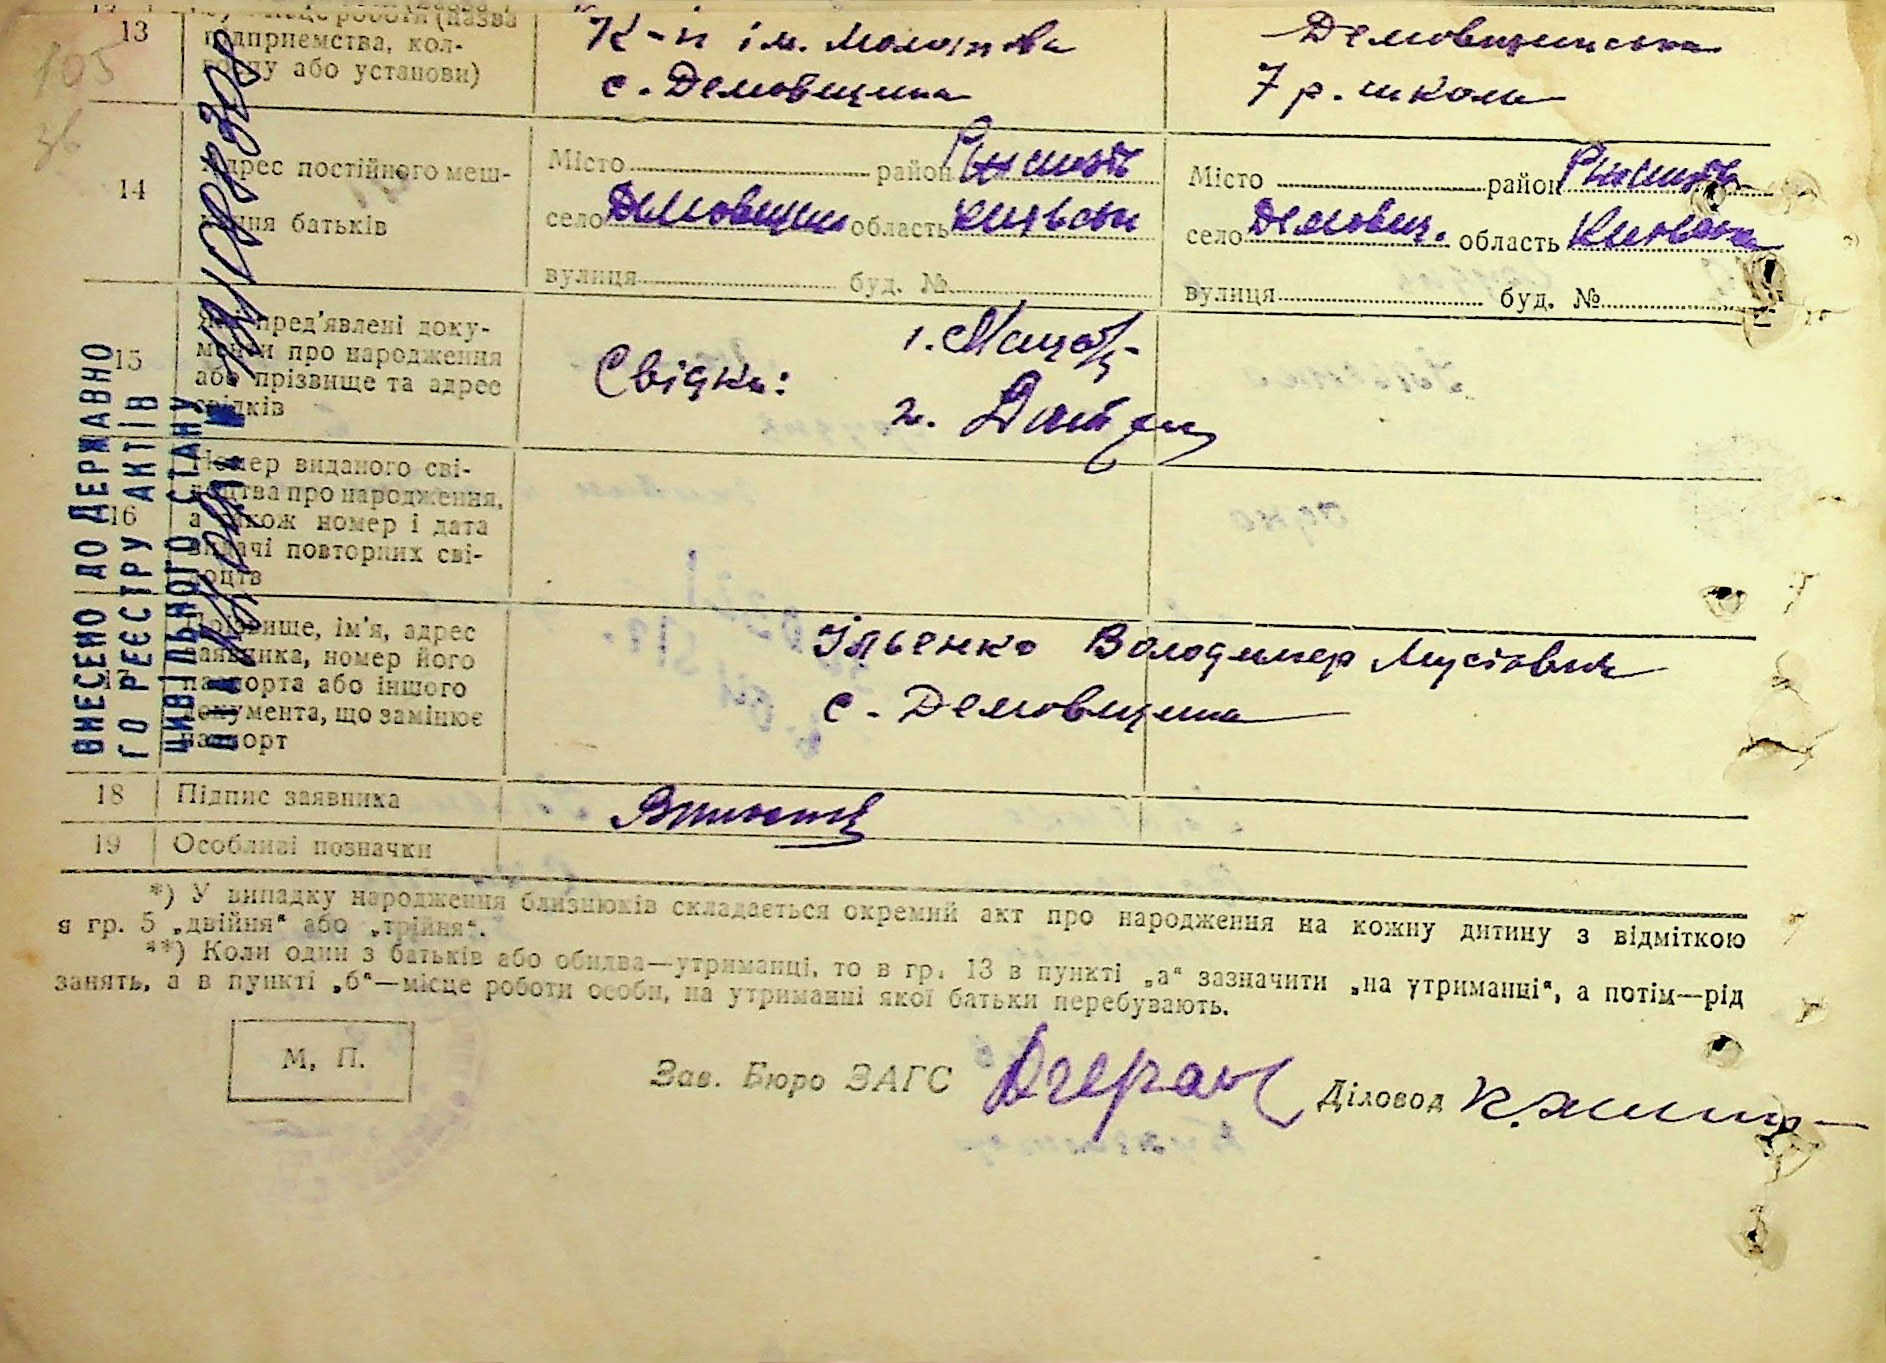 13
підприємства, кол-
або установи)
К-п ім. Молотова
с. Демовщина
Демовщинська
7 р. школа
105
36
14
Адрес постійного меш-
батьків
Місто район
село Демовщина область Київськ
вулиця буд. №
Місто район
село Демовщ. область Київська
вулиця буд. №
15
пред'явлені доку-
про народження
або прізвище та адрес
свідків
Свідки:
1.
2.
16
Номер виданого сві-
про народження,
а також номер і дата
видачі повторних сві-
доцтв
17
Прізвище, ім'я, адрес
заявника, номер його
паспорта або іншого
документа, що замінює
паспорт
Ільєнко Володимир Мусієвич
с. Демовщина
18 Підпис заявника
19 Особливі позначки
ВНЕСЕНО ДО ДЕРЖАВНО
ГО РЕЄСТРУ АКТІВ
ЦИВІЛЬНОГО СТАНУ
*) У випадку народження близнюків складається окремий акт про народження на кожну дитину з відміткою
в гр. 5 „двійня“ або „трійня“.
**) Коли один з батьків або обидва—утриманці, то в гр. 13 в пункті „а“ зазначити „на утриманні“, а потім—рід
занять, а в пункті „б“—місце роботи особи, на утриманні якої батьки перебувають.
М. П.
Зав. Бюро ЗАГС
Діловод